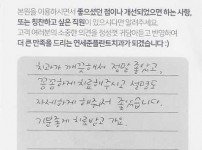 본원을 이용하시면서 좋으셨던 점이나 개선되었으면 하는 사항,
또는 칭찬하고 싶은 직원이 있으시다면 알려주세요.
고객 여러분의 소중한 의견을 정성껏 귀담아듣고 반영하여
더 큰 만족을 드리는 연세준플란트치과가 되겠습니다 :)
치과가 깨끗해서 정말 좋았고,
꼼꼼하게 치료해주시고 설명도
자세하게 해주셔서 좋았습니다.
기분좋게 치료받고 가요